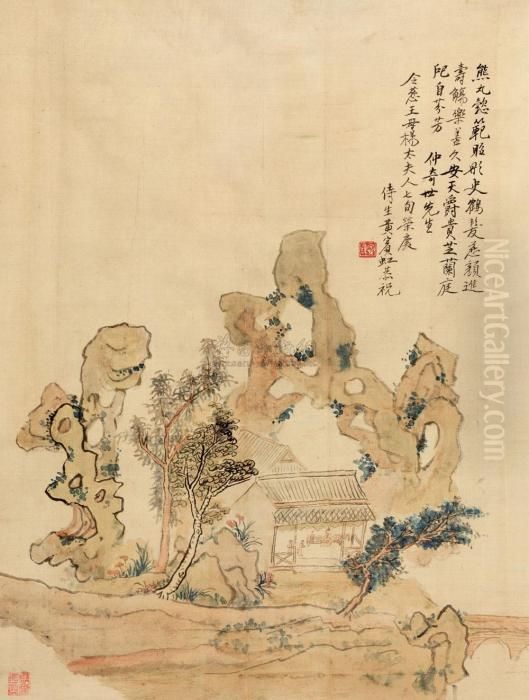 熊丸懿範貽彤史鶴髮慈顏進
壽觴樂善久安天爵貴芝蘭庭
戺自芬芳 仲奇世先生
令慈王母楊太夫人七旬榮慶
侍生黃賓虹恭祝
NiceArtGallery.com